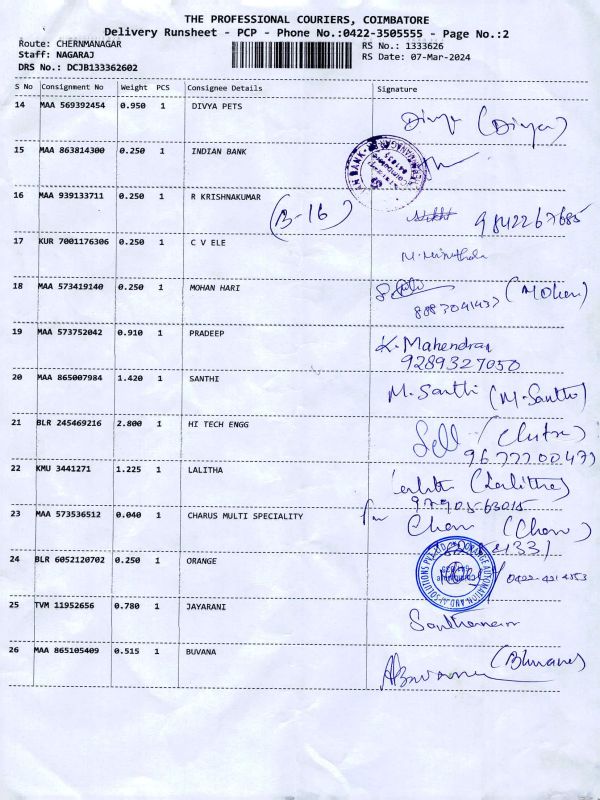 THE PROFESSIONAL COURIERS, COIMBATORE
Delivery Runsheet - PCP - Phone No.:0422-3505555 - Page No.:2
Route: CHERNMANAGAR RS No.: 1333626
Staff: NAGARAJ RS Date: 07-Mar-2024
DRS No.: DCJB133362602
S No Consignment No Weight PCS Consignee Details Signature
14 MAA 569392454 0.950 1 DIVYA PETS
Divya (Divya)
15 MAA 863814300 0.250 1 INDIAN BANK
16 MAA 939133711 0.250 1 R KRISHNAKUMAR
(B-16) 9842267685
17 KUR 7001176306 0.250 1 C V ELE
18 MAA 573419140 0.250 1 MOHAN HARI
(Mohan)
19 MAA 573752042 0.910 1 PRADEEP
K. Mahendran
9289327050
20 MAA 865007984 1.420 1 SANTHI
M. Santhi (M. Santhi)
21 BLR 245469216 2.800 1 HI TECH ENGG
22 KMU 3441271 1.225 1 LALITHA
(Lalitha)
23 MAA 573536512 0.040 1 CHARUS MULTI SPECIALITY
24 BLR 6052120702 0.250 1 ORANGE
25 TVM 11952656 0.780 1 JAYARANI
26 MAA 865105409 0.515 1 BUVANA